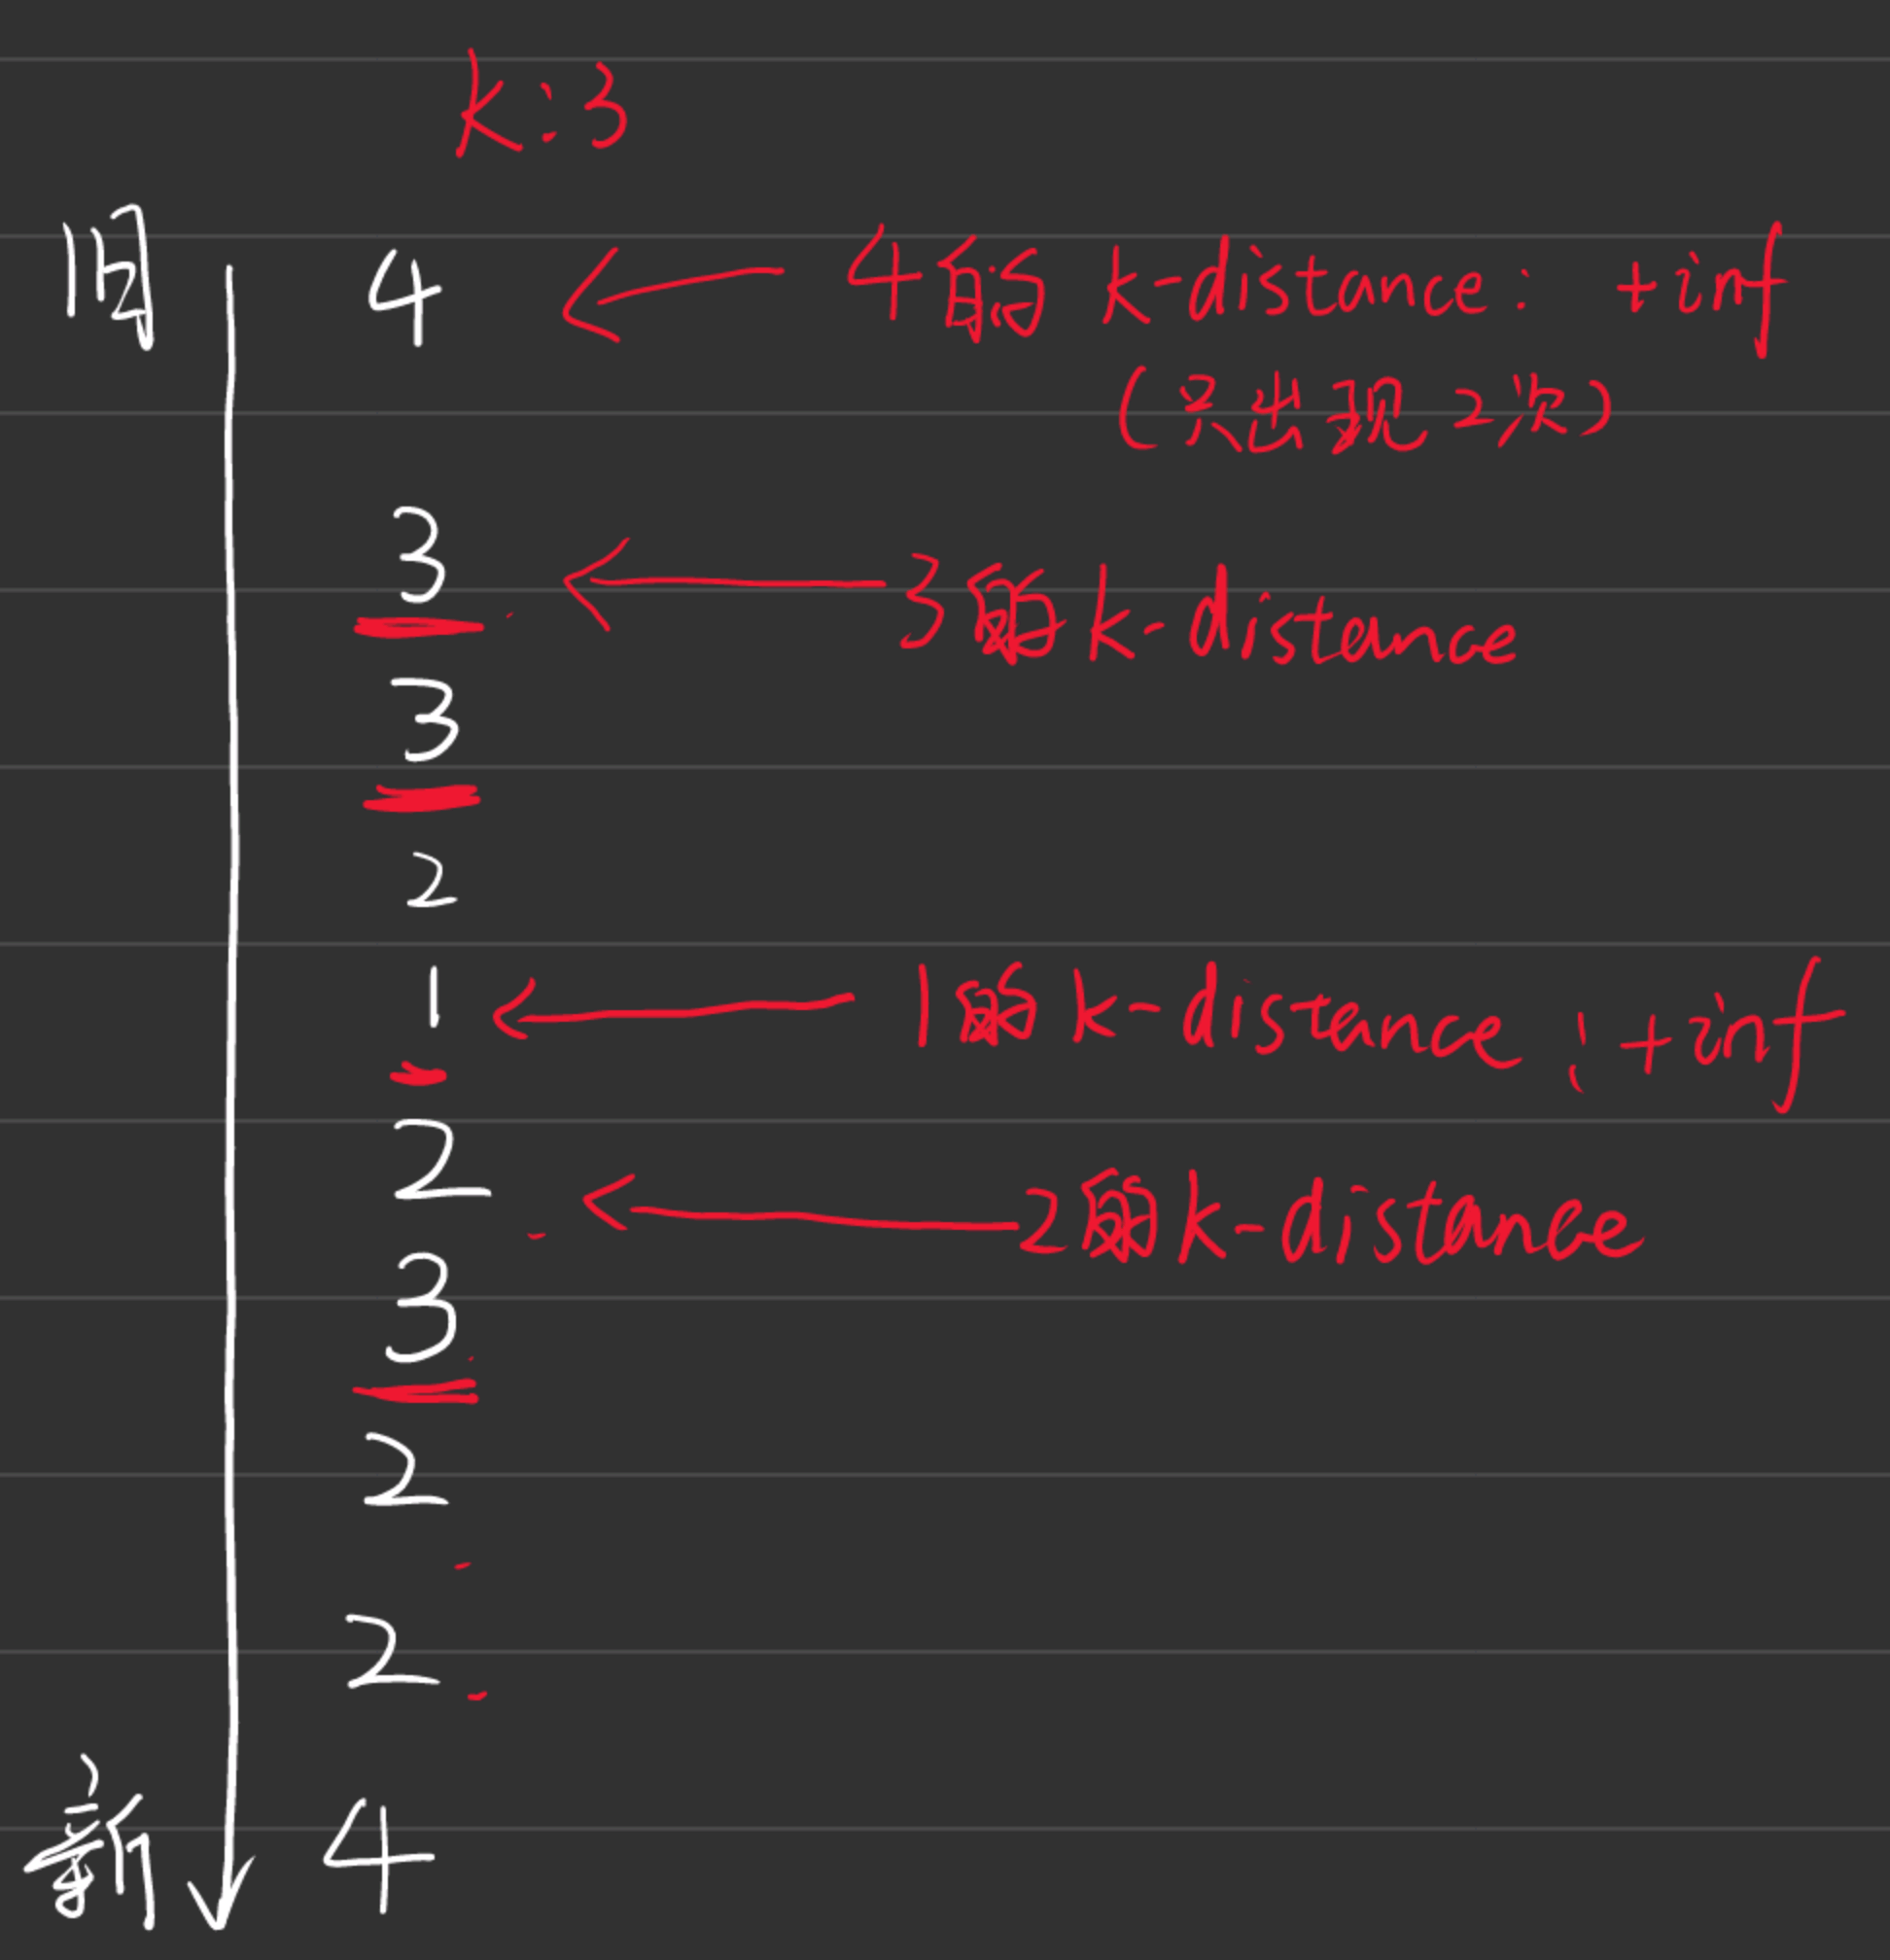 k:3
旧 4 ← 4的 k-distance: +inf
(只出现2次)
3 ← 3的k-distance
3
2
1 ← 1的k-distance: +inf
2 ← 2的k-distance
3
2
2
新 4